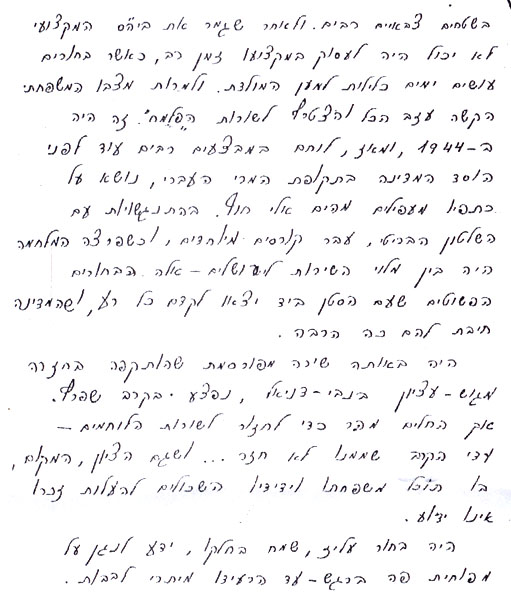 בשטחים צבאיים רבים. ולאחר שגמר את ביה"ס המקצועי
לא יכול היה לעסוק במקצועו זמן רב, כאשר בחורים
עושים ימים כלילות למען המולדת. ולמרות מצבו המשפחתי
הקשה עזב הכל והצטרף לשורות הפלמ"ח. זה היה
ב-1944, ומאז, לוחם במבצעים רבים עוד לפני
הוסד המדינה בתקופת המרי העברי, נושא על
כתפיו מעפילים מהים אלי חוף. בהתנגשויות עם
השלטון הבריטי, עבר קורסים מיוחדים, וכשפרצה המלחמה
היה בין מלוי השירות לירושלים - אלה הבחורים
הפשוטים שעם הסטן ביד יצאו לקדם כל רע, ושהמדינה
חייבת להם כה הרבה.
היה באותה שיירה מפורסמת שהותקפה בחזרה
מגוש-עציון בנבי-דניאל, נפצע בקרב שפרץ.
אך החלים מהר כדי לחזור לשורות הלוחמים -
עדי הקרב שממנו לא חזר... ושגם הציון, המקום,
בו תוכל משפחתו וידידיו השכולים להעלות זכרו
אינו ידוע.
היה בחור עליז, שמח בחלקו, ידע לנגן על
מפוחית פה ברגש - עד הרעידו מיתרי לבבות.